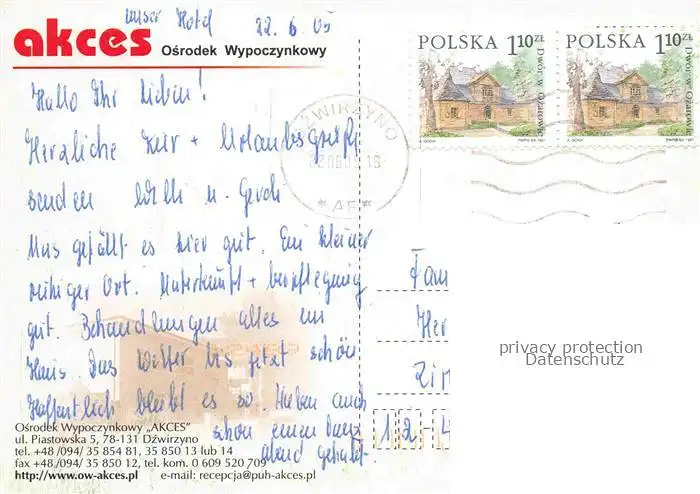 unser Hotel 22.6.05
akces
Ośrodek Wypoczynkowy
Hallo Ihr Lieben!
Herzliche Kur + Urlaubsgrüße
senden Willi u. Gerdi
Uns gefällt es hier gut. Ein kleiner
ruhiger Ort. Unterkunft + Verpflegung
gut. Behandlungen alles im
Haus. Das Wetter bis jetzt schön
Hoffentlich bleibt es so. Haben auch
schon einen Tanz
abend gehabt.
Ośrodek Wypoczynkowy „AKCES"
ul. Piastowska 5, 78-131 Dźwirzyno
tel. +48 /094/ 35 854 81, 35 850 13 lub 14
fax +48 /094/ 35 850 12, tel. kom. 0 609 520 709
http://www.ow-akces.pl e-mail: recepcja@puh-akces.pl
POLSKA 1,10 ZŁ
POLSKA 1,10 ZŁ
DŹWIRZYNO
Fam
Her
privacy protection
Datenschutz
12-4